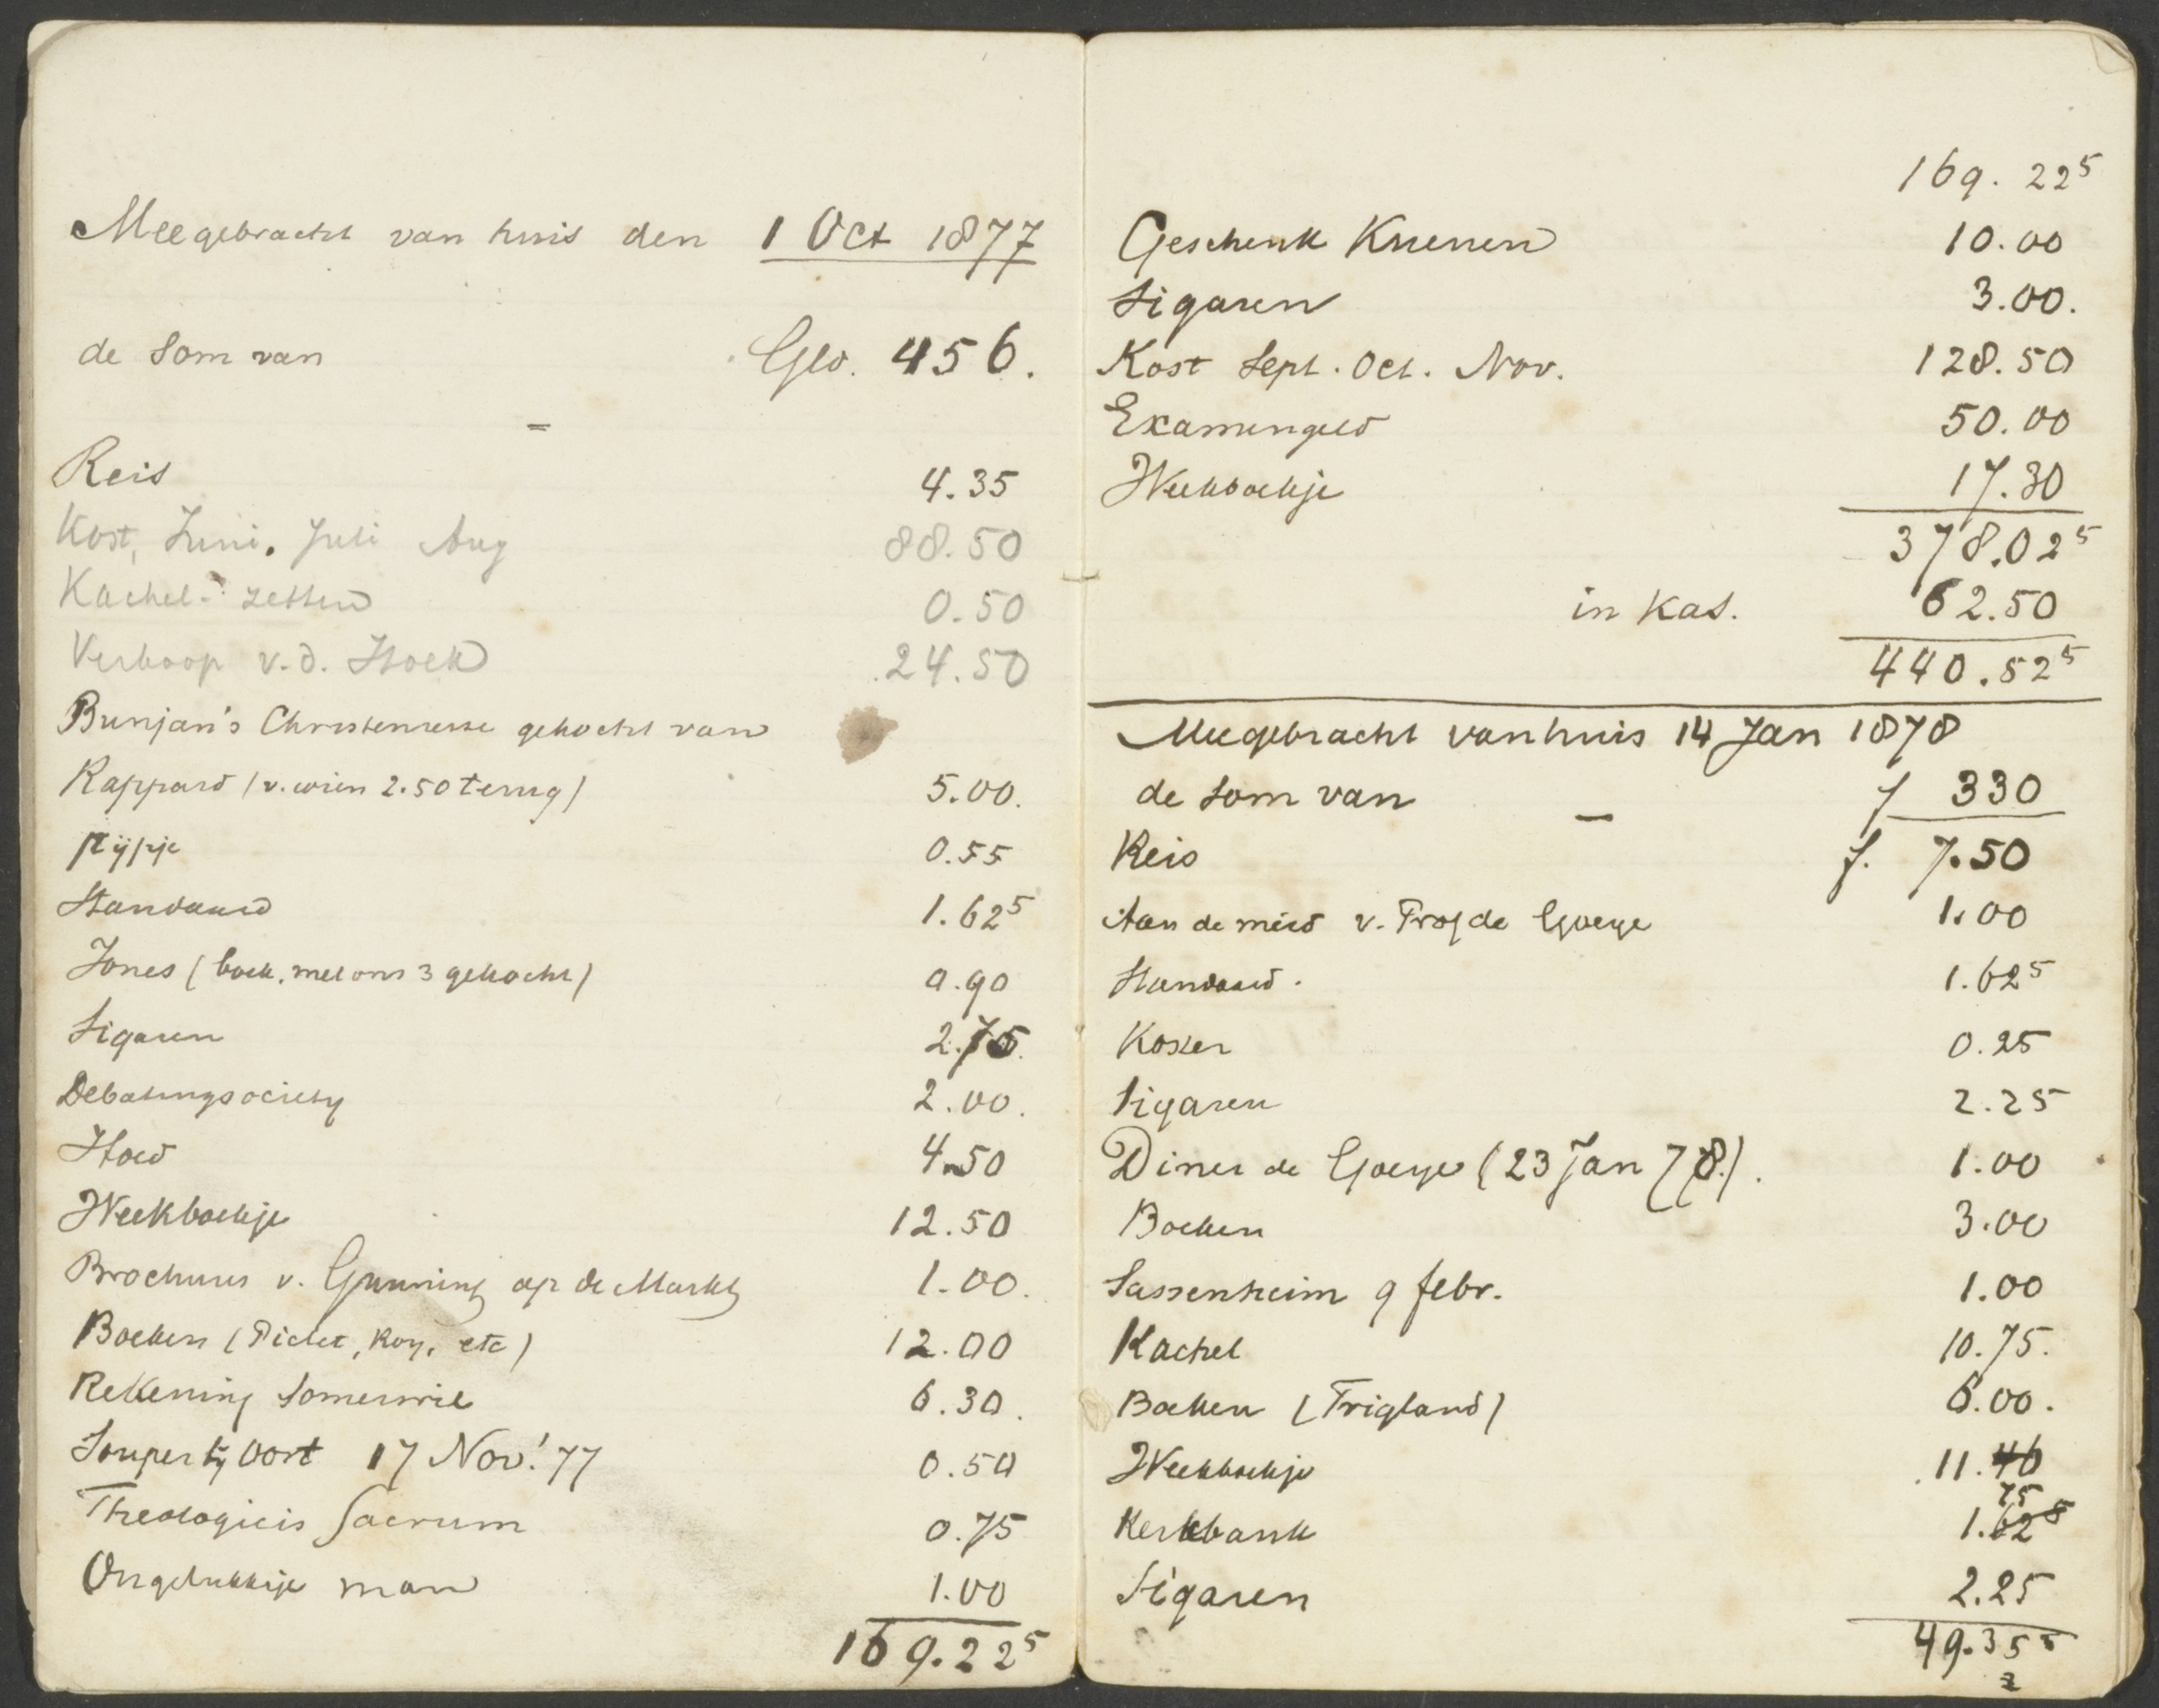 Meegebracht van huis den 1 Oct 1877
de Som van Gld. 456.
Reis 4.35
Kost, Juni, Juli Aug 88.50
Kachel-zetten 0.50
Verkoop v.d. Hoek 24.50
Bunjan's Christenreise gekocht van
Rappard (v. wien 2.50 terug) 5.00.
pijpje 0.55
Standaard 1.62⁵
Jones (boek, met ons 3 gekocht) 0.90
Sigaren 2.75.
Debatingsociety 2.00.
Hoed 4.50
Weekboekje 12.50
Brochures v. Gunning op de Markt 1.00.
Boeken (Pictet, Roy, etc) 12.00
Rekening Somerwil 6.30.
Souper bij Oort 17 Nov! 77 0.50
Theologicis Sacrum 0.75
Ongelukkige man 1.00
169.22⁵
169.22⁵
Geschenk Kuenen 10.00
Sigaren 3.00.
Kost Sept. Oct. Nov. 128.50
Examengeld 50.00
Weekboekje 17.30
378.02⁵
in Kas. 62.50
440.52⁵
Meegebracht van huis 14 Jan 1878
de som van f 330
Reis f. 7.50
Aan de meid v. Prof de Goeje 1.00
Standaard. 1.62⁵
Koster 0.25
Sigaren 2.25
Diner de Goeje (23 Jan 78.). 1.00
Boeken 3.00
Sassenheim 9 febr. 1.00
Kachel 10.75.
Boeken (Trigland) 6.00.
Weekboekje 11.46
75
Kerkbank 1.62⁵
Sigaren 2.25
49.35⁵
2